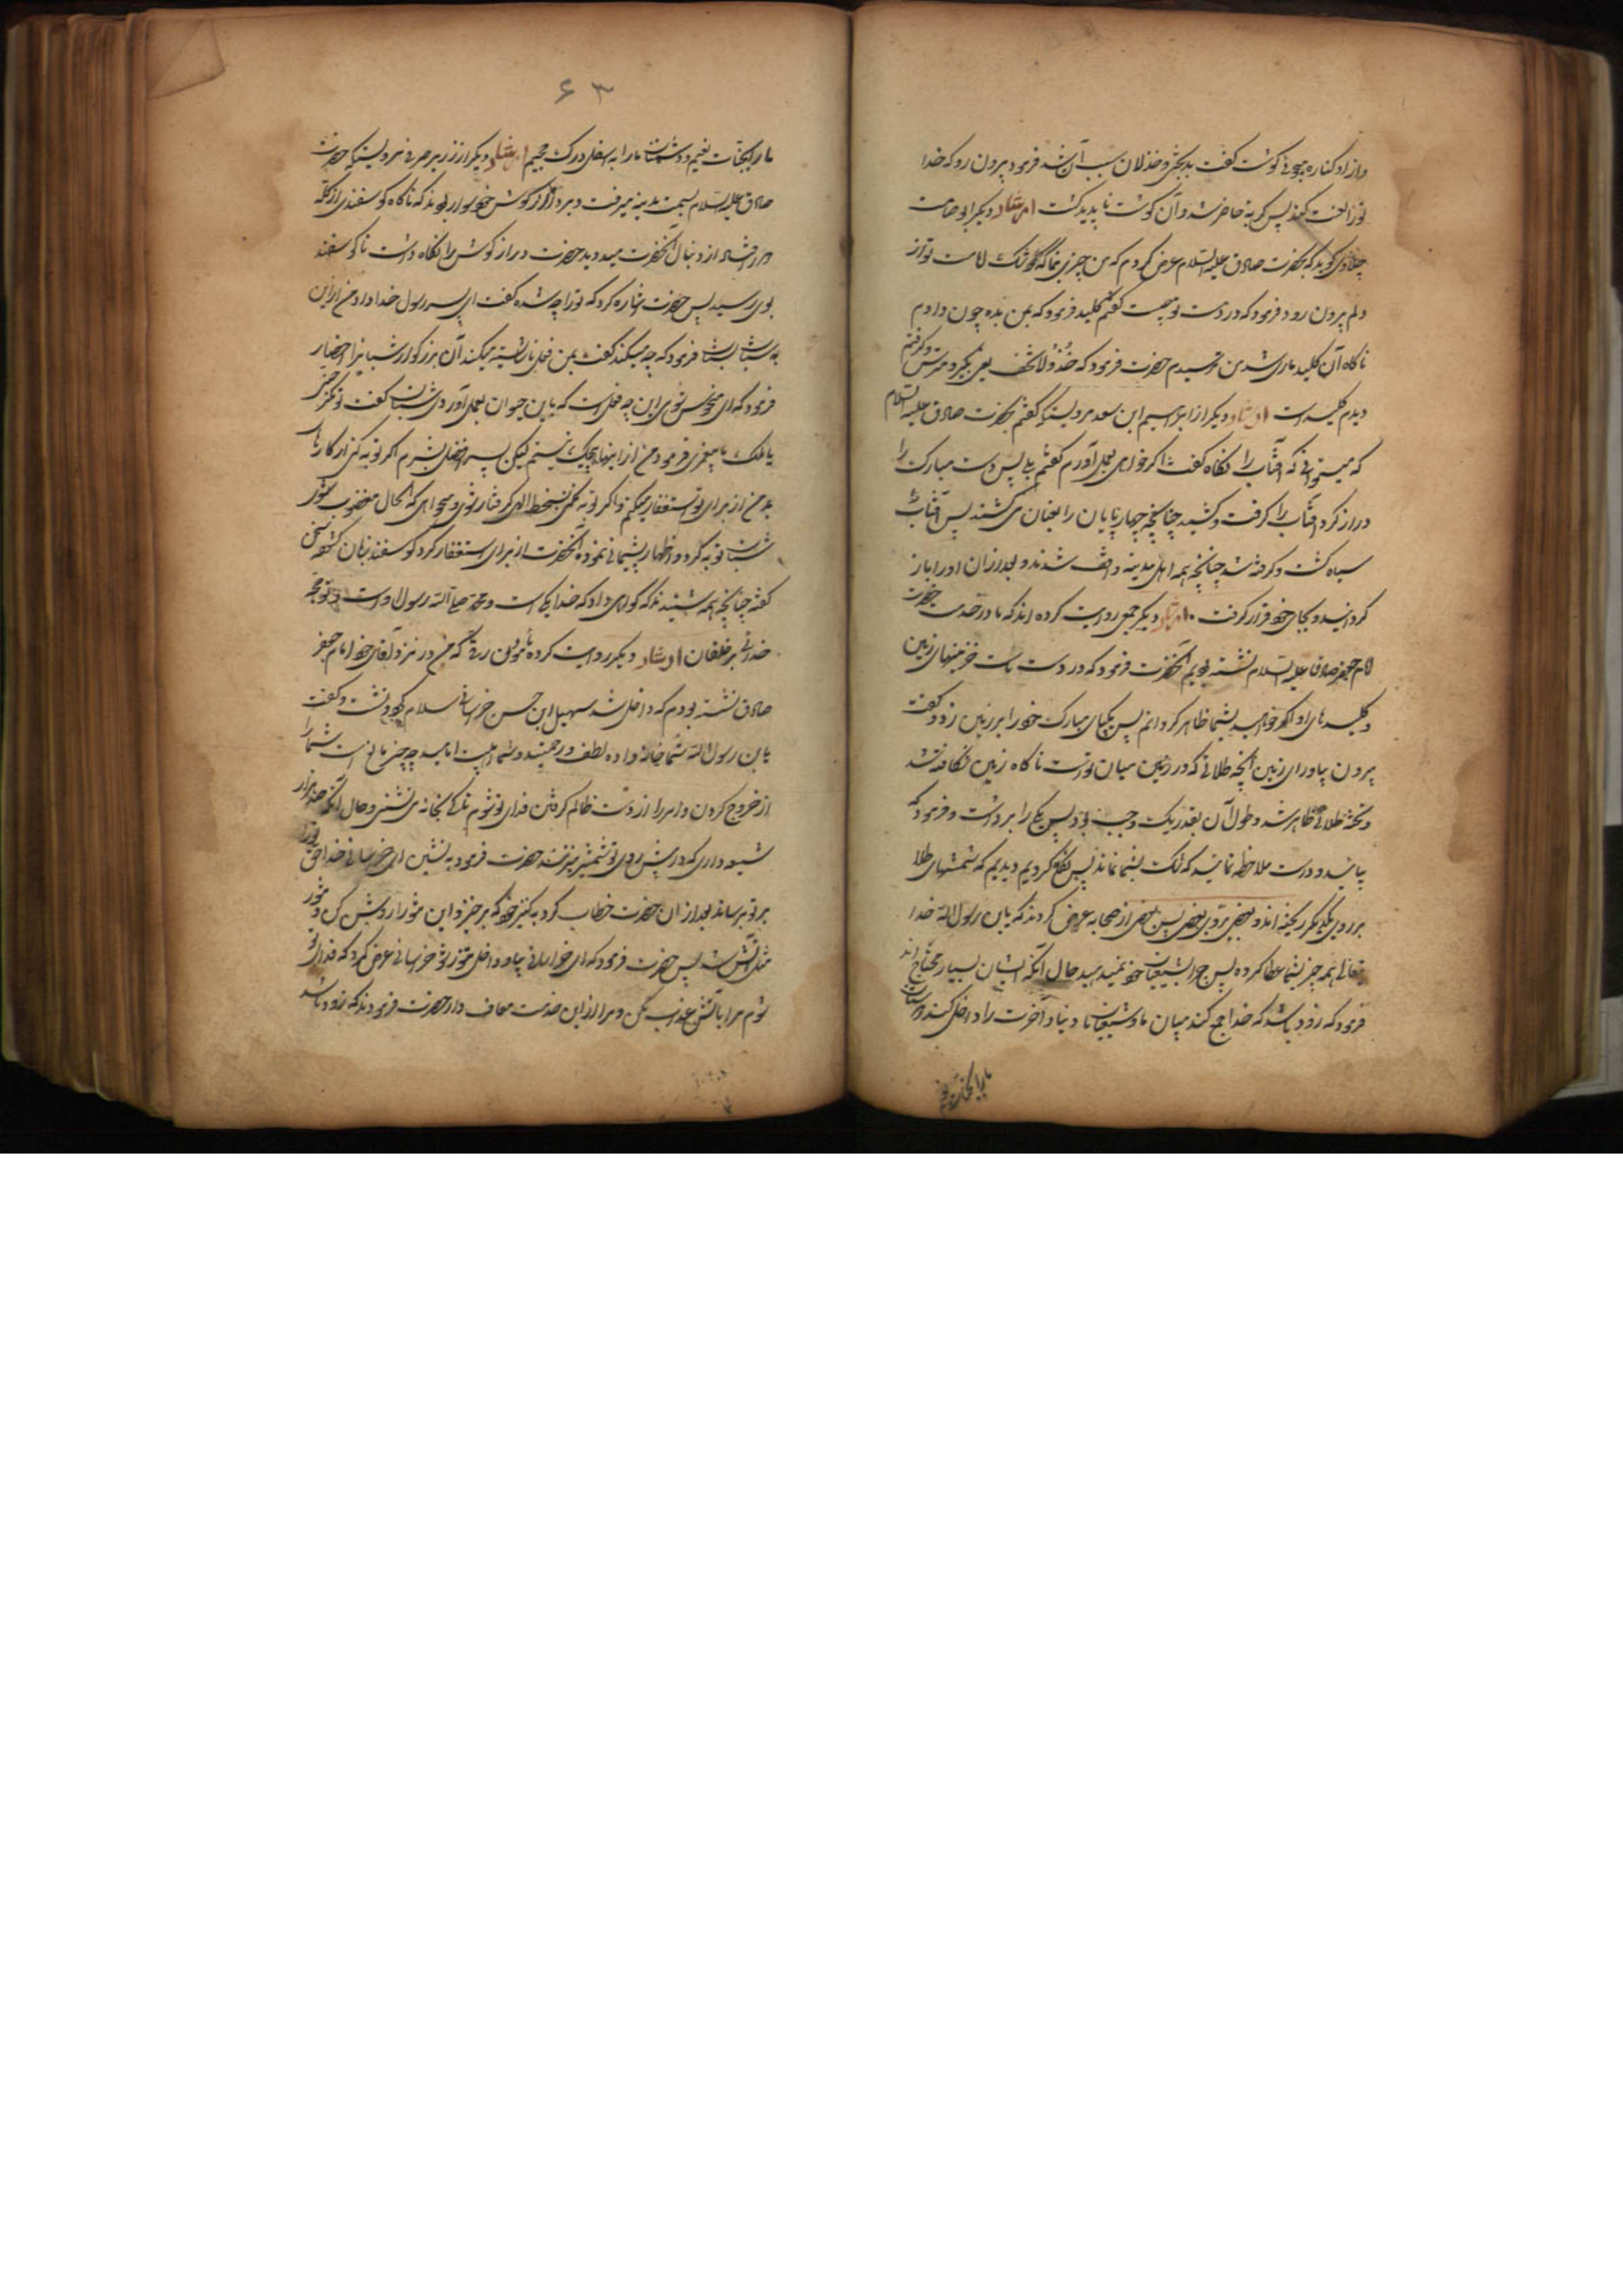 و از او کناره میجوئی گوشت گفت بدبختی و خذلان سبب آن شد فرمود بیرون رو که خدا
ترا لعنت کند پس گربه حاضر شد و آن گوشت ناپدید گشت ارشاد دیگر ابو صامت
حلاوی گوید که بحضرت صادق علیه السلام عرض کردم که بمن چیزی بنما که شک لامامت تو از
دلم بیرون رود فرمود که در دست تو چیست گفتم کلید فرمود که بمن بده چون دادم
ناگاه آن کلید ماری شد من ترسیدم حضرت فرمود که خذ ولا تخف یعنی بگیر و مترس و گرفتم
دیدم کلید است ارشاد دیگر از ابراهیم ابن سعد مرویست که گفتم بحضرت صادق علیه السلام
که میتوانی که آفتاب را نگاه گفت اگر خواهی بعمل آورم گفتم بلی پس دست مبارک را
دراز کرد آفتاب را گرفت و کشید چنانچه چهارپایان را بعنان می کشند پس آفتاب
سیاه گشت و گرفته شد چنانچه همه اهل مدینه واقف شدند و بعد از آن او را باز
گردانید و بجای خود قرار گرفت ارشاد دیگر جمعی روایت کرده اند که ما در خدمت حضرت
امام جعفر صادق علیه السلام نشسته بودیم آنحضرت فرمود که در دست ماست خزینهای زمین
و کلیدهای او اگر خواهید بشما ظاهر گردانم پس یکپای مبارک خود را بر زمین زد و گفت
بیرون بیاور ای زمین آنچه طلائی که در زمین میان تو است ناگاه زمین شکافته شد
و تخته طلائی ظاهر شد و طول آن بقدر یک وجب بود پس یکی را برداشت و فرمود که
بیائید و درست ملاحظه نمائید که شک بشما نماند پس نگاه کردیم دیدیم که شمشهای طلا
بر روی یکدیگر ریخته اند و بعضی بر روی بعضی پس بعضی از صحابه عرض کردند که یابن رسول الله خدا
تعالی همه چیز بشما عطا کرده پس چرا بشیعیان خود نمیدهید حال آنکه ایشان بسیار محتاج اند
فرمود که زود باشد که خدا جمع کند میان ما و شیعیان ما دنیا و آخرت را داخل کند دوستان
ما را بجنات نعیم
۶۳
ما را بجنات نعیم و دشمنان ما را به اسفل درک جحیم ارشاد دیگر از زبیر مرویست که حضرت
صادق علیه السلام بسمت مدینه میرفت و بر درازگوش خود سوار بودند که ناگاه گوسفندی از گله
از دنبال آنحضرت میدوید حضرت درازگوش را نگاه داشت تا گوسفند
بوی رسید پس حضرت اشاره کرد که ترا چه شده گفت ای پسر رسول خدا داد من از این
شبان بستان فرمود که چه میکند گفت بمن فعل ناشایسته میکند آن بزرگوار شبانرا احضار
فرمود که ای منحوس شوی این چه فعل است که باین حیوان بعمل آوردی شبان گفت تو مگر
یا ملک یا پیغمبری فرمود من از اینها هیچیک نیستم لیکن پسر افضل بشرم اگر توبه کنی از کارهای
بد من از برای تو استغفار میکنم و اگر توبه نکنی بسخط الهی گرفتار شوی و میخواهی که الحال مغضوب شوی
شبان توبه کرد و اظهار پشیمانی نموده آنحضرت از برای او استغفار کرد گوسفند زبان گشوده سخن
گفته چنانچه همه شنیدند که گواهی داد که خدا یکی است و محمد صلی الله رسول او است و تو حجت
خدائی بر خلقان ارشاد دیگر روایت کرده مامون رقی که من در نزد آقای خود امام جعفر
صادق نشسته بودم که داخل شد سهیل ابن حسن خراسانی سلام کرد و نشست و گفت
یابن رسول الله شما خانواده لطف و رحمتید و شما اهلبیت امامید چه چیز مانع است شما را
از خروج کردن و امر را از دست ظالم گرفتن فدای تو شوم تا کی بخانه می نشینی و حال آنکه صد هزار
شیعه داری که در پیش روی تو شمشیر بزنند حضرت فرمود به نشین ای خراسانی خدا حق ترا
بر تو برساند بعد از آن حضرت خطاب کرد به کنیز خود که برخیز و این تنور را روشن کن و تنور
مثل آتش شد پس حضرت فرمود که ای خراسانی بیا و داخل تنور شو خراسانی عرض کرد که فدای تو
شوم مرا بآتش عذاب مکن و مرا از این خدمت معاف دار حضرت فرمودند که زود باشد